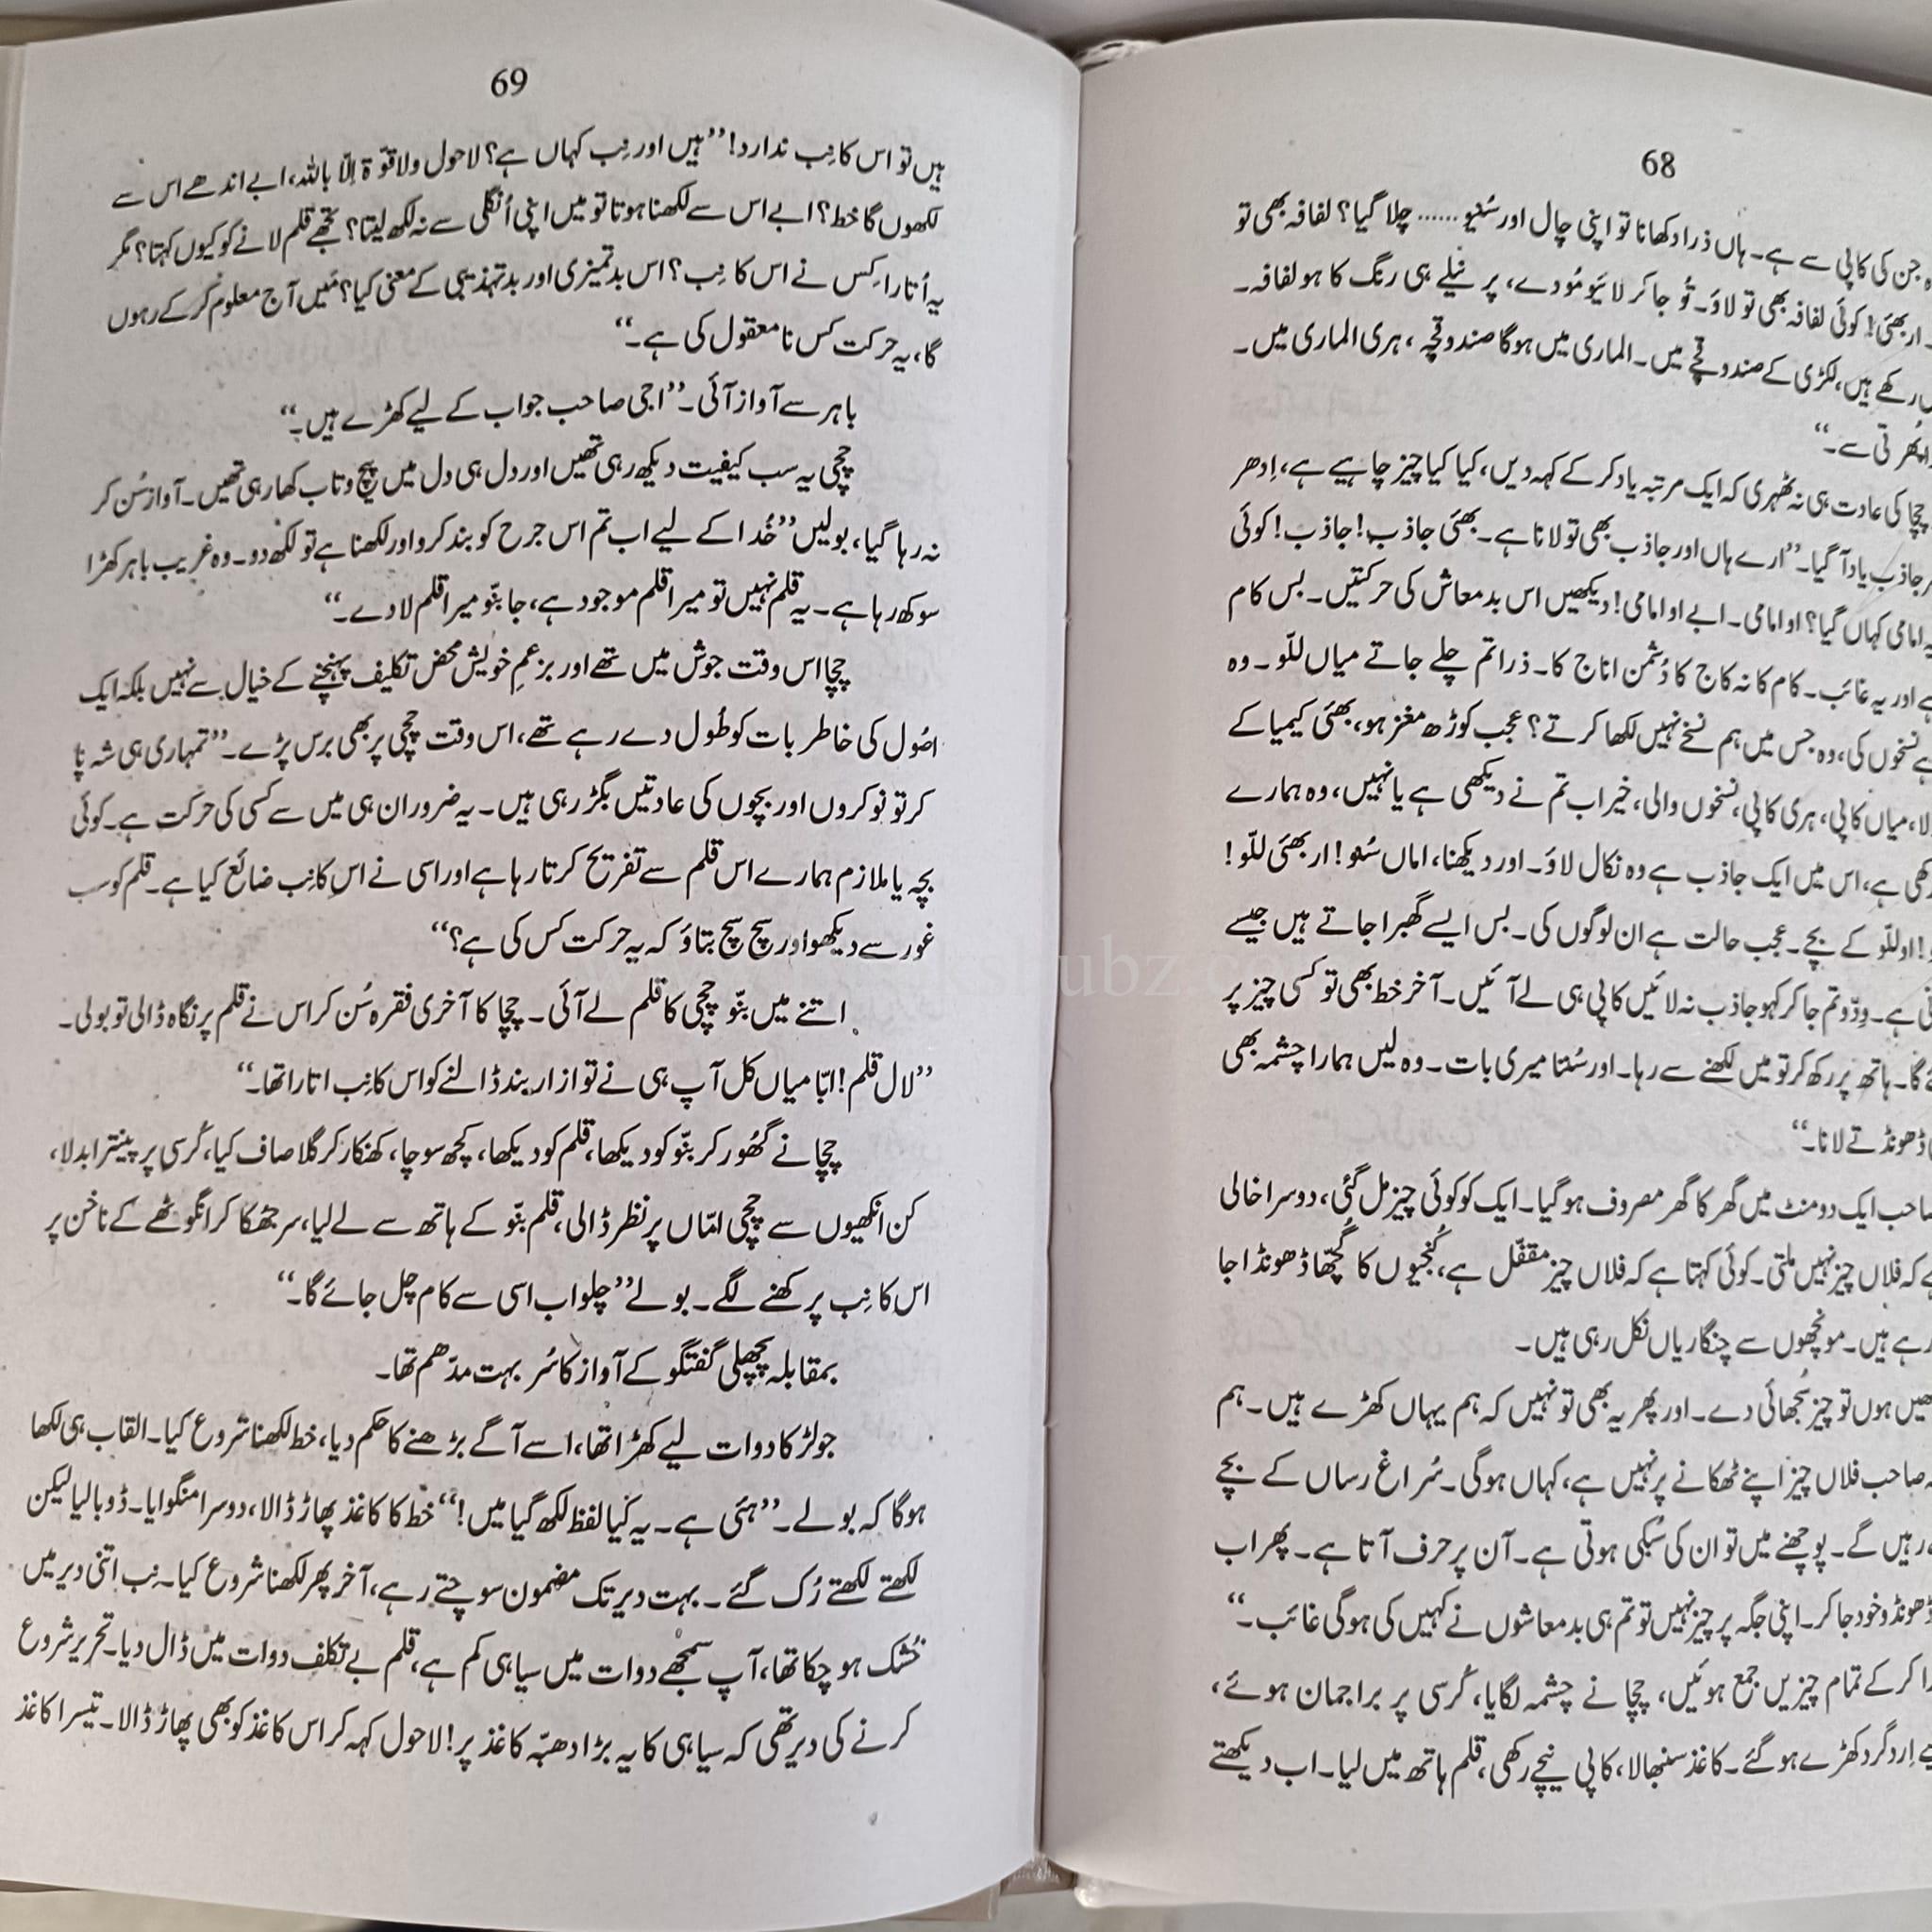 68
جن کی کاپی سے ہے۔ ہاں ذرا دکھانا تو اپنی چال اور سُنیو ...... چلا گیا؟ لفافہ بھی تو
اربھئی! کوئی لفافہ بھی تو لاؤ۔ تُو جا کر لائیو مُودے، پر نیلے ہی رنگ کا ہو لفافہ۔
رکھے ہیں، لکڑی کے صندوقچے میں۔ الماری میں ہوگا صندوقچہ، ہری الماری میں۔
پھُرتی سے۔“
چچا کی عادت ہی نہ ٹھہری کہ ایک مرتبہ یاد کر کے کہہ دیں، کیا کیا چیز چاہیے ہے، اِدھر
جاذب یاد آ گیا۔ ”ارے ہاں اور جاذب بھی تو لانا ہے۔ بھئی جاذب! جاذب! کوئی
امامی کہاں گیا؟ او امامی۔ ابے او امامی! دیکھیں اس بدمعاش کی حرکتیں۔ بس کام
اور یہ غائب۔ کام کا نہ کاج کا دُشمن اناج کا۔ ذرا تم چلے جاتے میاں للّو۔ وہ
نسخوں کی، وہ جس میں ہم نسخے نہیں لکھا کرتے؟ عجب کوڑھ مغز ہو، بھئی کیمیا کے
میاں کاپی، ہری کاپی، نسخوں والی، خیر اب تم نے دیکھی ہے یا نہیں، وہ ہمارے
ہے، اس میں ایک جاذب ہے وہ نکال لاؤ۔ اور دیکھنا، اماں سُنو! اربھئی للّو!
! او للّو کے بچے۔ عجب حالت ہے ان لوگوں کی۔ بس ایسے گھبرا جاتے ہیں جیسے
ہے۔ وِدّو تم جا کر کہو جاذب نہ لائیں کاپی ہی لے آئیں۔ آخر خط بھی تو کسی چیز پر
گا۔ ہاتھ پر رکھ کر تو میں لکھنے سے رہا۔ اور سُننا میری بات۔ وہ لیں ہمارا چشمہ بھی
ڈھونڈتے لانا۔“
صاحب ایک دو منٹ میں گھر کا گھر مصروف ہو گیا۔ ایک کو کوئی چیز مل گئی، دوسرا خالی
کہ فلاں چیز نہیں ملتی۔ کوئی کہتا ہے کہ فلاں چیز مقفّل ہے، کُنجیوں کا گُچھّا ڈھونڈا جا
رہے ہیں۔ مونچھوں سے چنگاریاں نکل رہی ہیں۔
ہوں تو چیز سُجھائی دے۔ اور پھر یہ بھی تو نہیں کہ ہم یہاں کھڑے ہیں۔ ہم
صاحب فلاں چیز اپنے ٹھکانے پر نہیں ہے، کہاں ہوگی۔ سُراغ رساں کے بچے
رہیں گے۔ پوچھنے میں تو ان کی سُبکی ہوتی ہے۔ آن پر حرف آتا ہے۔ پھر اب
ڈھونڈو خود جا کر۔ اپنی جگہ پر چیز نہیں تو تم ہی بدمعاشوں نے کہیں کی ہوگی غائب۔“
کر کے تمام چیزیں جمع ہوئیں، چچا نے چشمہ لگایا، کُرسی پر براجمان ہوئے،
اِردگرد کھڑے ہو گئے۔ کاغذ سنبھالا، کاپی نیچے رکھی، قلم ہاتھ میں لیا۔ اب دیکھتے
69
ہیں تو اس کا نِب ندارد! ”ہیں اور نِب کہاں ہے؟ لا حول ولا قوّۃ اِلّا باللہ، ابے اندھے اس سے
لکھوں گا خط؟ ابے اس سے لکھنا ہوتا تو میں اپنی اُنگلی سے نہ لکھ لیتا؟ تجھے قلم لانے کو کیوں کہتا؟ مگر
یہ اُتارا کِس نے اس کا نِب؟ اس بدتمیزی اور بدتہذیبی کے معنی کیا؟ مَیں آج معلوم کر کے رہوں
گا، یہ حرکت کس نامعقول کی ہے۔“
باہر سے آواز آئی۔ ”اجی صاحب جواب کے لیے کھڑے ہیں۔“
چچی یہ سب کیفیت دیکھ رہی تھیں اور دل ہی دل میں پیچ و تاب کھا رہی تھیں۔ آواز سُن کر
نہ رہا گیا، بولیں ”خُدا کے لیے اب تم اس جرح کو بند کرو اور لکھنا ہے تو لکھ دو۔ وہ غریب باہر کھڑا
سوکھ رہا ہے۔ یہ قلم نہیں تو میرا قلم موجود ہے، جا بنّو میرا قلم لا دے۔“
چچا اس وقت جوش میں تھے اور بزعمِ خویش محض تکلیف پہنچنے کے خیال سے نہیں بلکہ ایک
اصُول کی خاطر بات کو طُول دے رہے تھے، اس وقت چچی پر بھی برس پڑے۔ ”تمہاری ہی شہ پا
کر تو نوکروں اور بچوں کی عادتیں بگڑ رہی ہیں۔ یہ ضرور ان ہی میں سے کسی کی حرکت ہے۔ کوئی
بچہ یا ملازم ہمارے اس قلم سے تفریح کرتا رہا ہے اور اسی نے اس کا نِب ضائع کیا ہے۔ قلم کو سب
غور سے دیکھو اور سچ سچ بتاؤ کہ یہ حرکت کس کی ہے؟“
اتنے میں بنّو چچی کا قلم لے آئی۔ چچا کا آخری فقرہ سُن کر اس نے قلم پر نگاہ ڈالی تو بولی۔
”لال قلم! ابّا میاں کل آپ ہی نے تو ازار بند ڈالنے کو اس کا نِب اتارا تھا۔“
چچا نے گھُور کر بنّو کو دیکھا، قلم کو دیکھا، کچھ سوچا، کھنکار کر گلا صاف کیا، کُرسی پر پینترا بدلا،
کن انکھیوں سے چچی امّاں پر نظر ڈالی، قلم بنّو کے ہاتھ سے لے لیا، سر جھکا کر انگوٹھے کے ناخن پر
اس کا نِب پرکھنے لگے۔ بولے ”چلو اب اسی سے کام چل جائے گا۔“
بمقابلہ پچھلی گفتگو کے آواز کا سُر بہت مدّھم تھا۔
جو لڑکا دوات لیے کھڑا تھا، اسے آگے بڑھنے کا حکم دیا، خط لکھنا شروع کیا۔ القاب ہی لکھا
ہوگا کہ بولے۔ ”ہئی ہے۔ یہ کیا لفظ لکھ گیا میں!“ خط کا کاغذ پھاڑ ڈالا، دوسرا منگوایا۔ ڈوبا لیا لیکن
لکھتے لکھتے رُک گئے۔ بہت دیر تک مضمون سوچتے رہے، آخر پھر لکھنا شروع کیا۔ نِب اتنی دیر میں
خُشک ہو چکا تھا، آپ سمجھے دوات میں سیاہی کم ہے، قلم بے تکلف دوات میں ڈال دیا۔ تحریر شروع
کرنے کی دیر تھی کہ سیاہی کا یہ بڑا دھبّہ کاغذ پر! لا حول کہہ کر اس کاغذ کو بھی پھاڑ ڈالا۔ تیسرا کاغذ